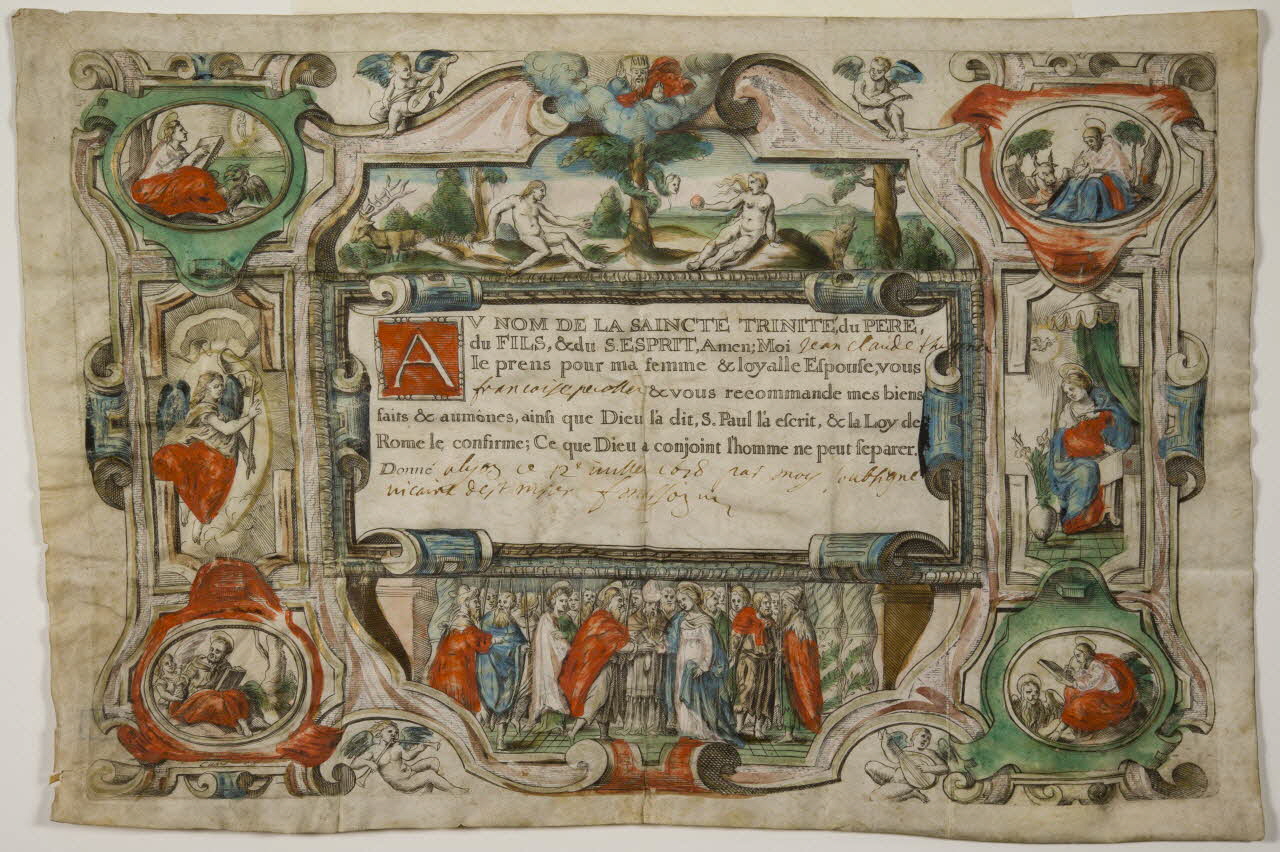 AV NOM DE LA SAINCTE TRINITÉ, du PERE,
du FILS, & du S. ESPRIT, Amen; Moi Jean Claude
Ie prens pour ma femme & loyalle Espouse, vous
francoise & vous recommande mes biens
faits & aumônes, ainsi que Dieu l'a dit, S. Paul l'a escrit, & la Loy de
Rome le confirme; Ce que Dieu a conjoint l'homme ne peut separer.
Donné ce par moy soubsigné
vicaire